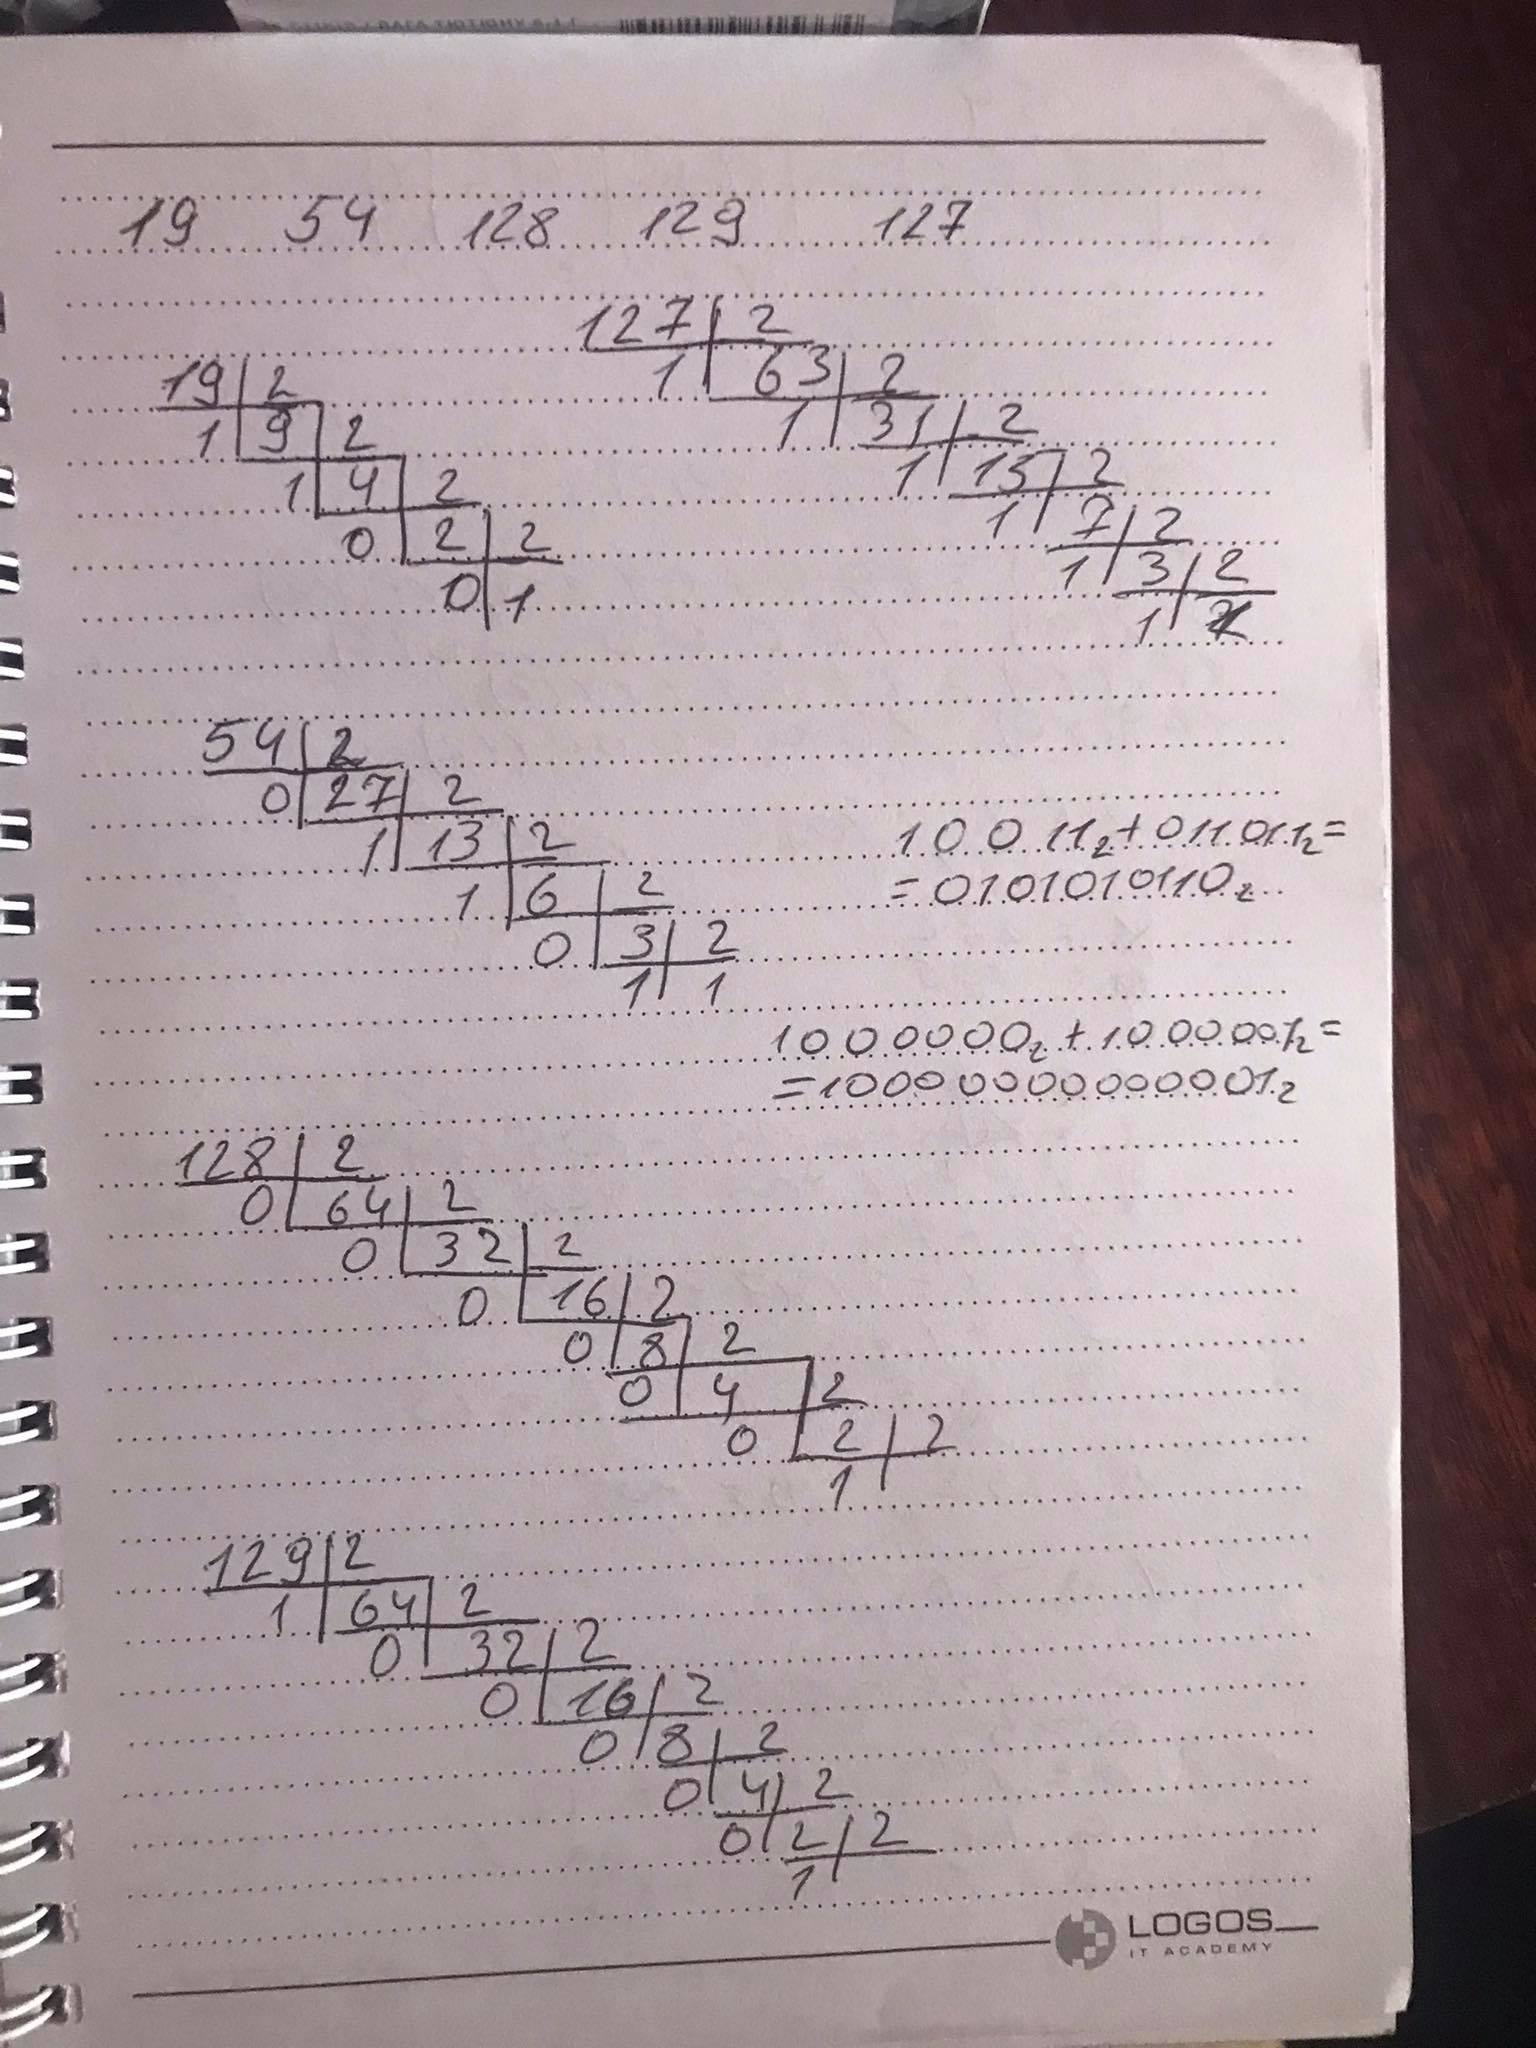 19 54 128 129 127
127 2
1 63 2
1 31 2
1 15 2
1 7 2
1 3 2
1
19 2
1 9 2
1 4 2
0 2 2
0 1
54 2
0 27 2
1 13 2
1 6 2
0 3 2
1 1
10011₂+011011₂=
=0101010110₂
1000000₂+1000001₂=
128 2
0 64 2
0 32 2
0 16 2
0 8 2
0 4 2
0 2 2
1
129 2
1 64 2
0 32 2
0 16 2
0 8 2
0 4 2
0 2 2
1
LOGOS
IT ACADEMY